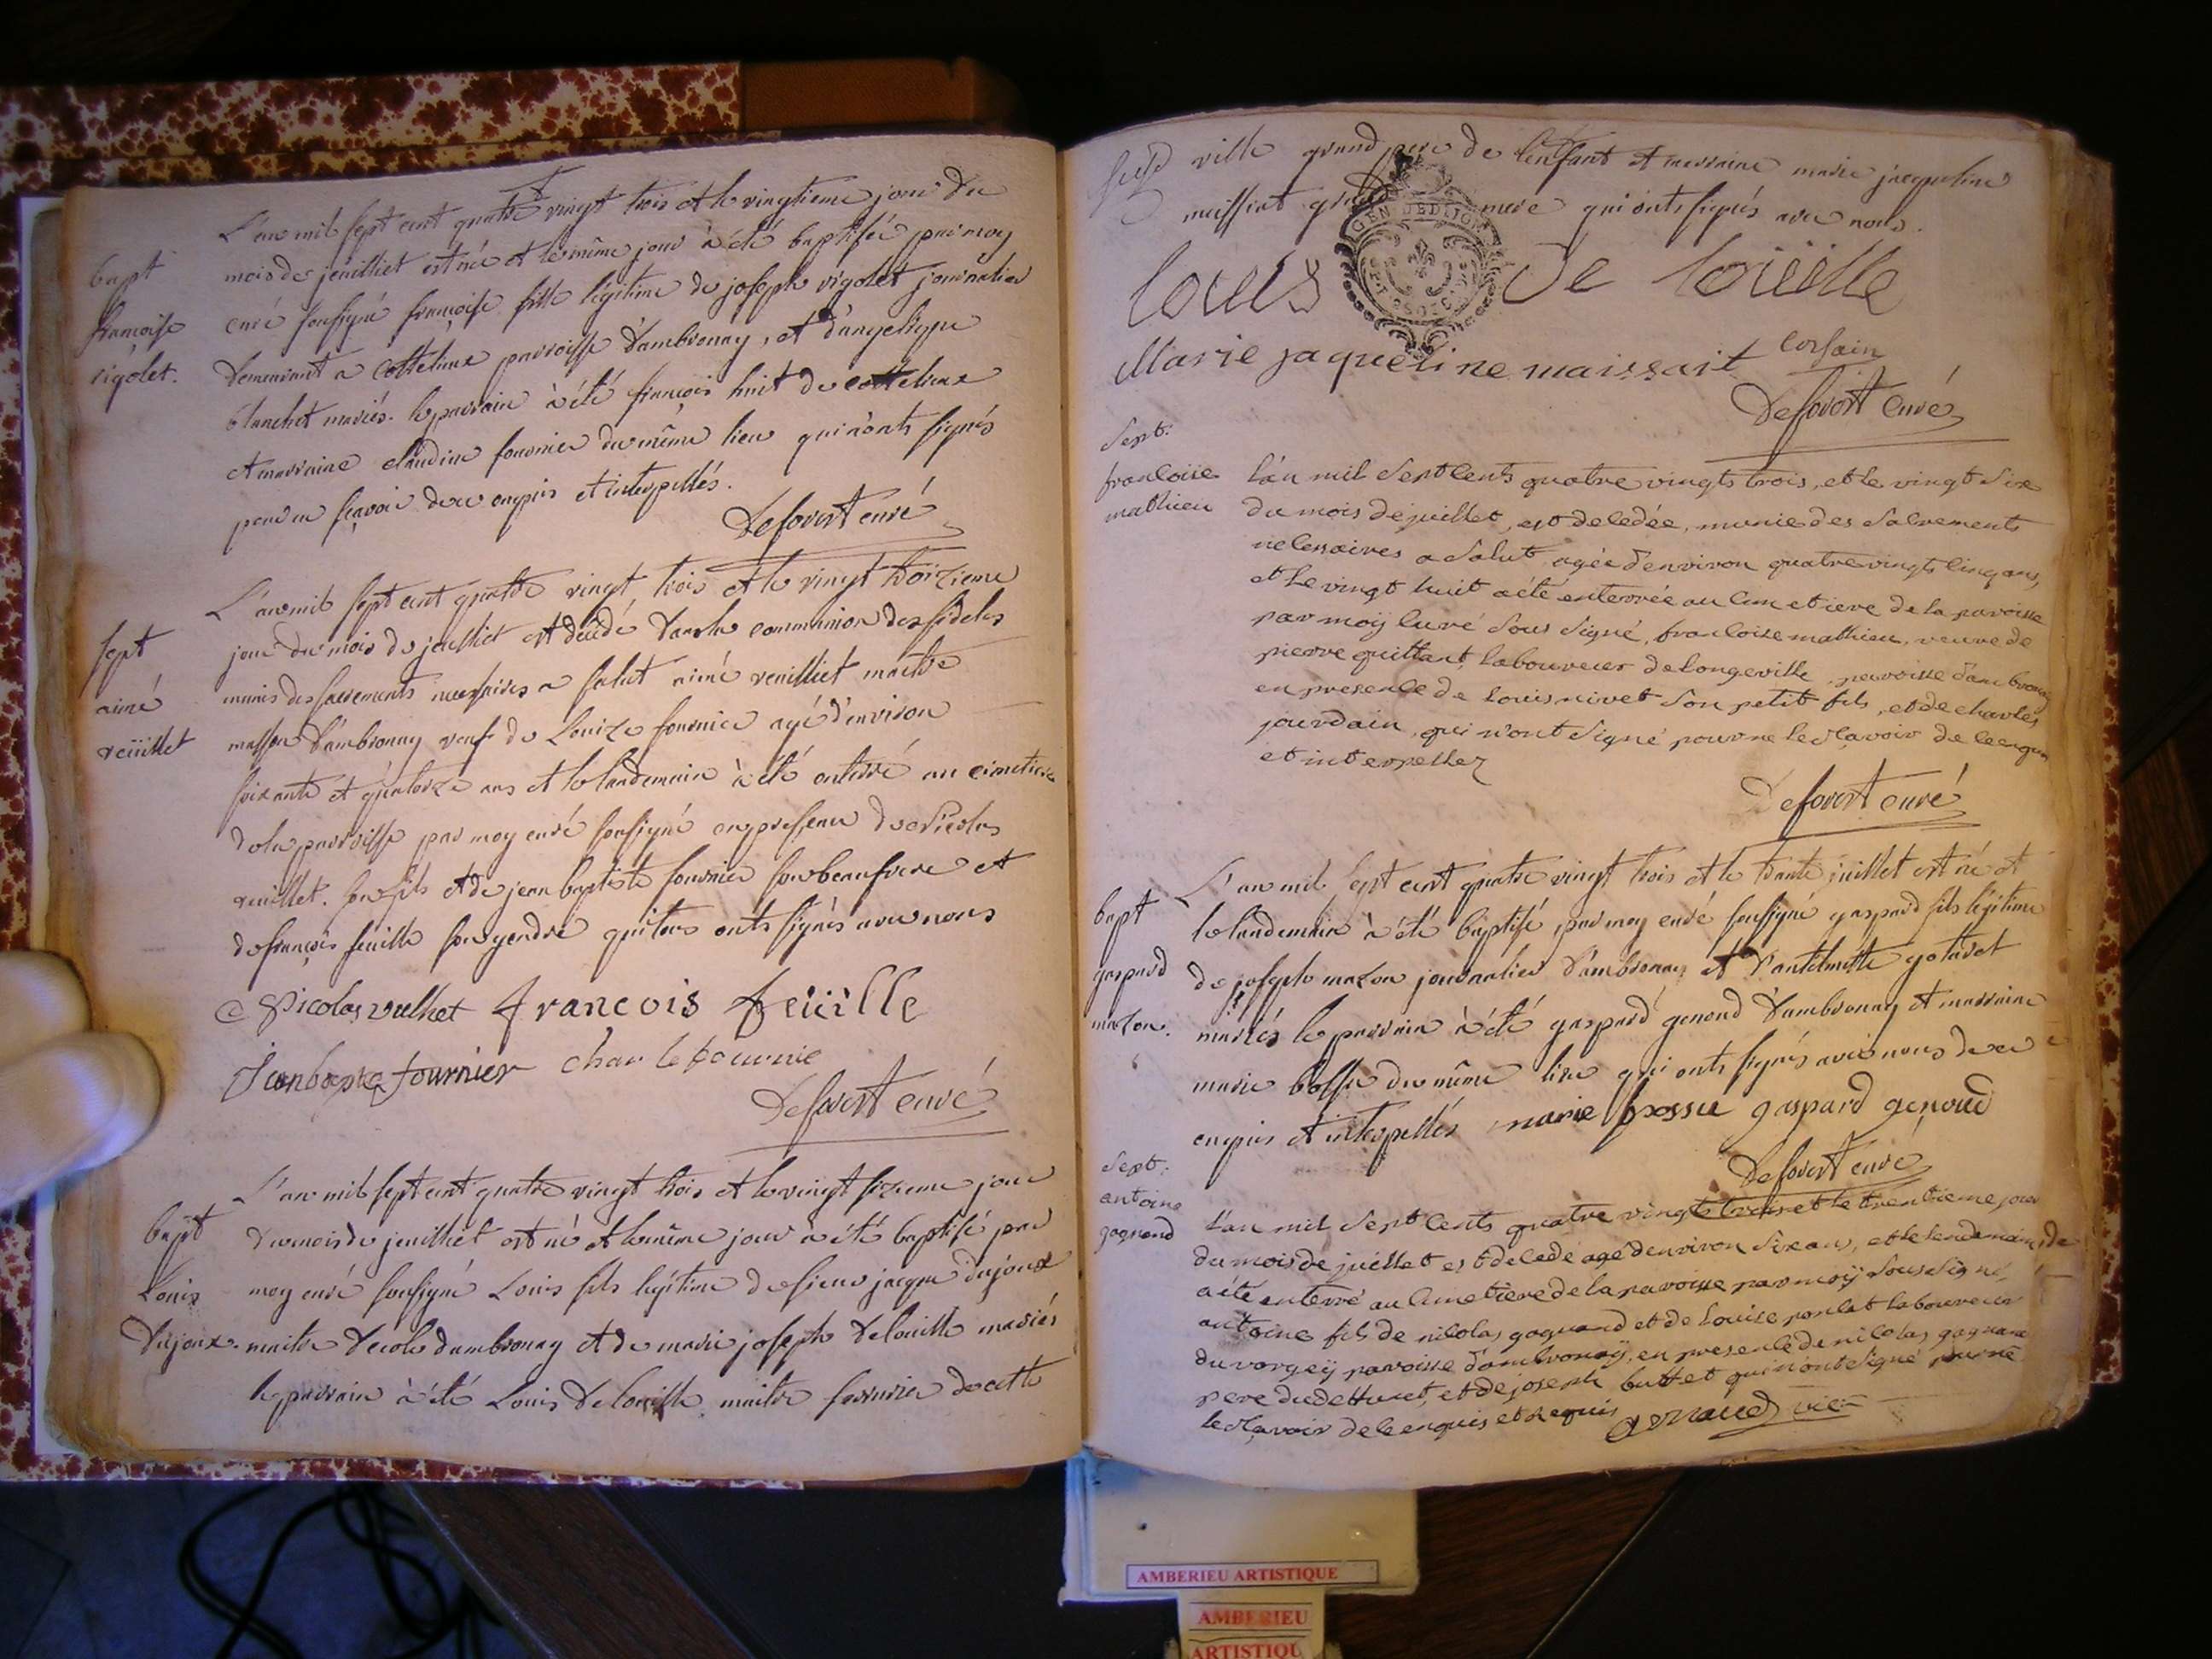 L'an mil sept cent quatre vingt trois et le vingtieme jour du
bapt
francoise
rigolet.
mois de jeuilliet est née et le même jour à été baptisée par moy
curé sousigné françoise fille légitime de joseph rigolet journalier
demeurant a Cottelieux parroisse d'ambronay, et d'angelique
blanchet mariés. le parrain à été françois huit de cottelieux
et marraine claudine fournier du même lieu qui n'onts signés
pour ne sçavoir de ce enquis et interpellés.
Deforest curé
L'an mil sept cent quatre vingt trois et le vingt troizieme
sept
aimé
reüillet
jour du mois de jeulliet est décédé dans la communion des fideles
munis des sacrements necessaires a salut aimé reuilliet maitre
masson d'ambronay veuf de Louize fournier agé d'environ
soixante et quatorze ans et le landemain à été enterré au cimetiere
de la parroisse par moy curé sousigné en presence de Nicolas
reuillet. son fils et de jean baptiste fournier son beaufrere et
de françois feüille son gendre qui tous onts signés avec nous
Nicolas vulhet francois feüille
Jean bapte fournier
Deforest curé
L'an mil sept cent quatre vingt trois et le vingt sizieme jour
bapt
Louis
Dujoux.
du mois de jeuilliet est né et le même jour à été baptisé par
moy curé sousigné Louis fils légitime de sieur jacque dujoux
maitre d'ecole d'ambronay et de marie joseph delouille mariés
le parrain à été Louis Delouille maitre serrurier de cette
susd ville grand pere de l'enfant et marraine marie jacqueline
meissiat grand mere qui onts signés avec nous.
GEN DE DIJON
Louis De loüille
Marie jaqueline maissait
Deforest Curé
Sept.
francoise
mathieu
L'an mil Sept Cents quatre vingts trois, et le vingt Six
du mois de juillet, est decedée, munie des Sacrements
necessaires a Salut, agée d'environ quatre vingts Cinq ans,
et le vingt huit a été enterrée au Cimetiere de la paroisse
par moÿ Curé Sous Signé, francoise mathieu, veuve de
pierre quittant, laboureur de longeville, paroisse d'ambronay
en presence de Louis nivet Son petit fils, et de charles
jourdain, qui n'ont Signé pour ne le sçavoir de ce enquis
et interpellez
Deforest curé
L'an mil sept cent quatre vingt trois et le trante juillet est né et
bapt
gaspard
mazon.
le landemain à été baptisé par moy curé sousigné gaspard fils légitime
de joseph mazon journalier d'ambronay et d'antelmette gotaret
mariés le parrain à été gaspard genoud d'ambronay et marraine
marie bossu du même lieu qui onts signés avec nous de ce
enquis et interpellés marie bossu gaspard genoud
Deforest curé
Sept.
antoine
gognand
L'an mil Sept Cents quatre vingts trois et le trentieme jour
du mois de juillet est decedé agé d'environ Six ans, et le lendemain
a été enterré au Cimetiere de la paroisse par moÿ Sous Signé,
antoine fils de nicolas gognand et de Louise poulat laboureur
du vorgeÿ paroisse d'ambronaÿ, en presence de nicolas gognand
pere du deffunct, et de joseph buttet qui n'ont Signé pour ne
le sçavoir de ce enquis et Requis
AMBERIEU ARTISTIQUE
AMBERIEU
ARTISTIQU